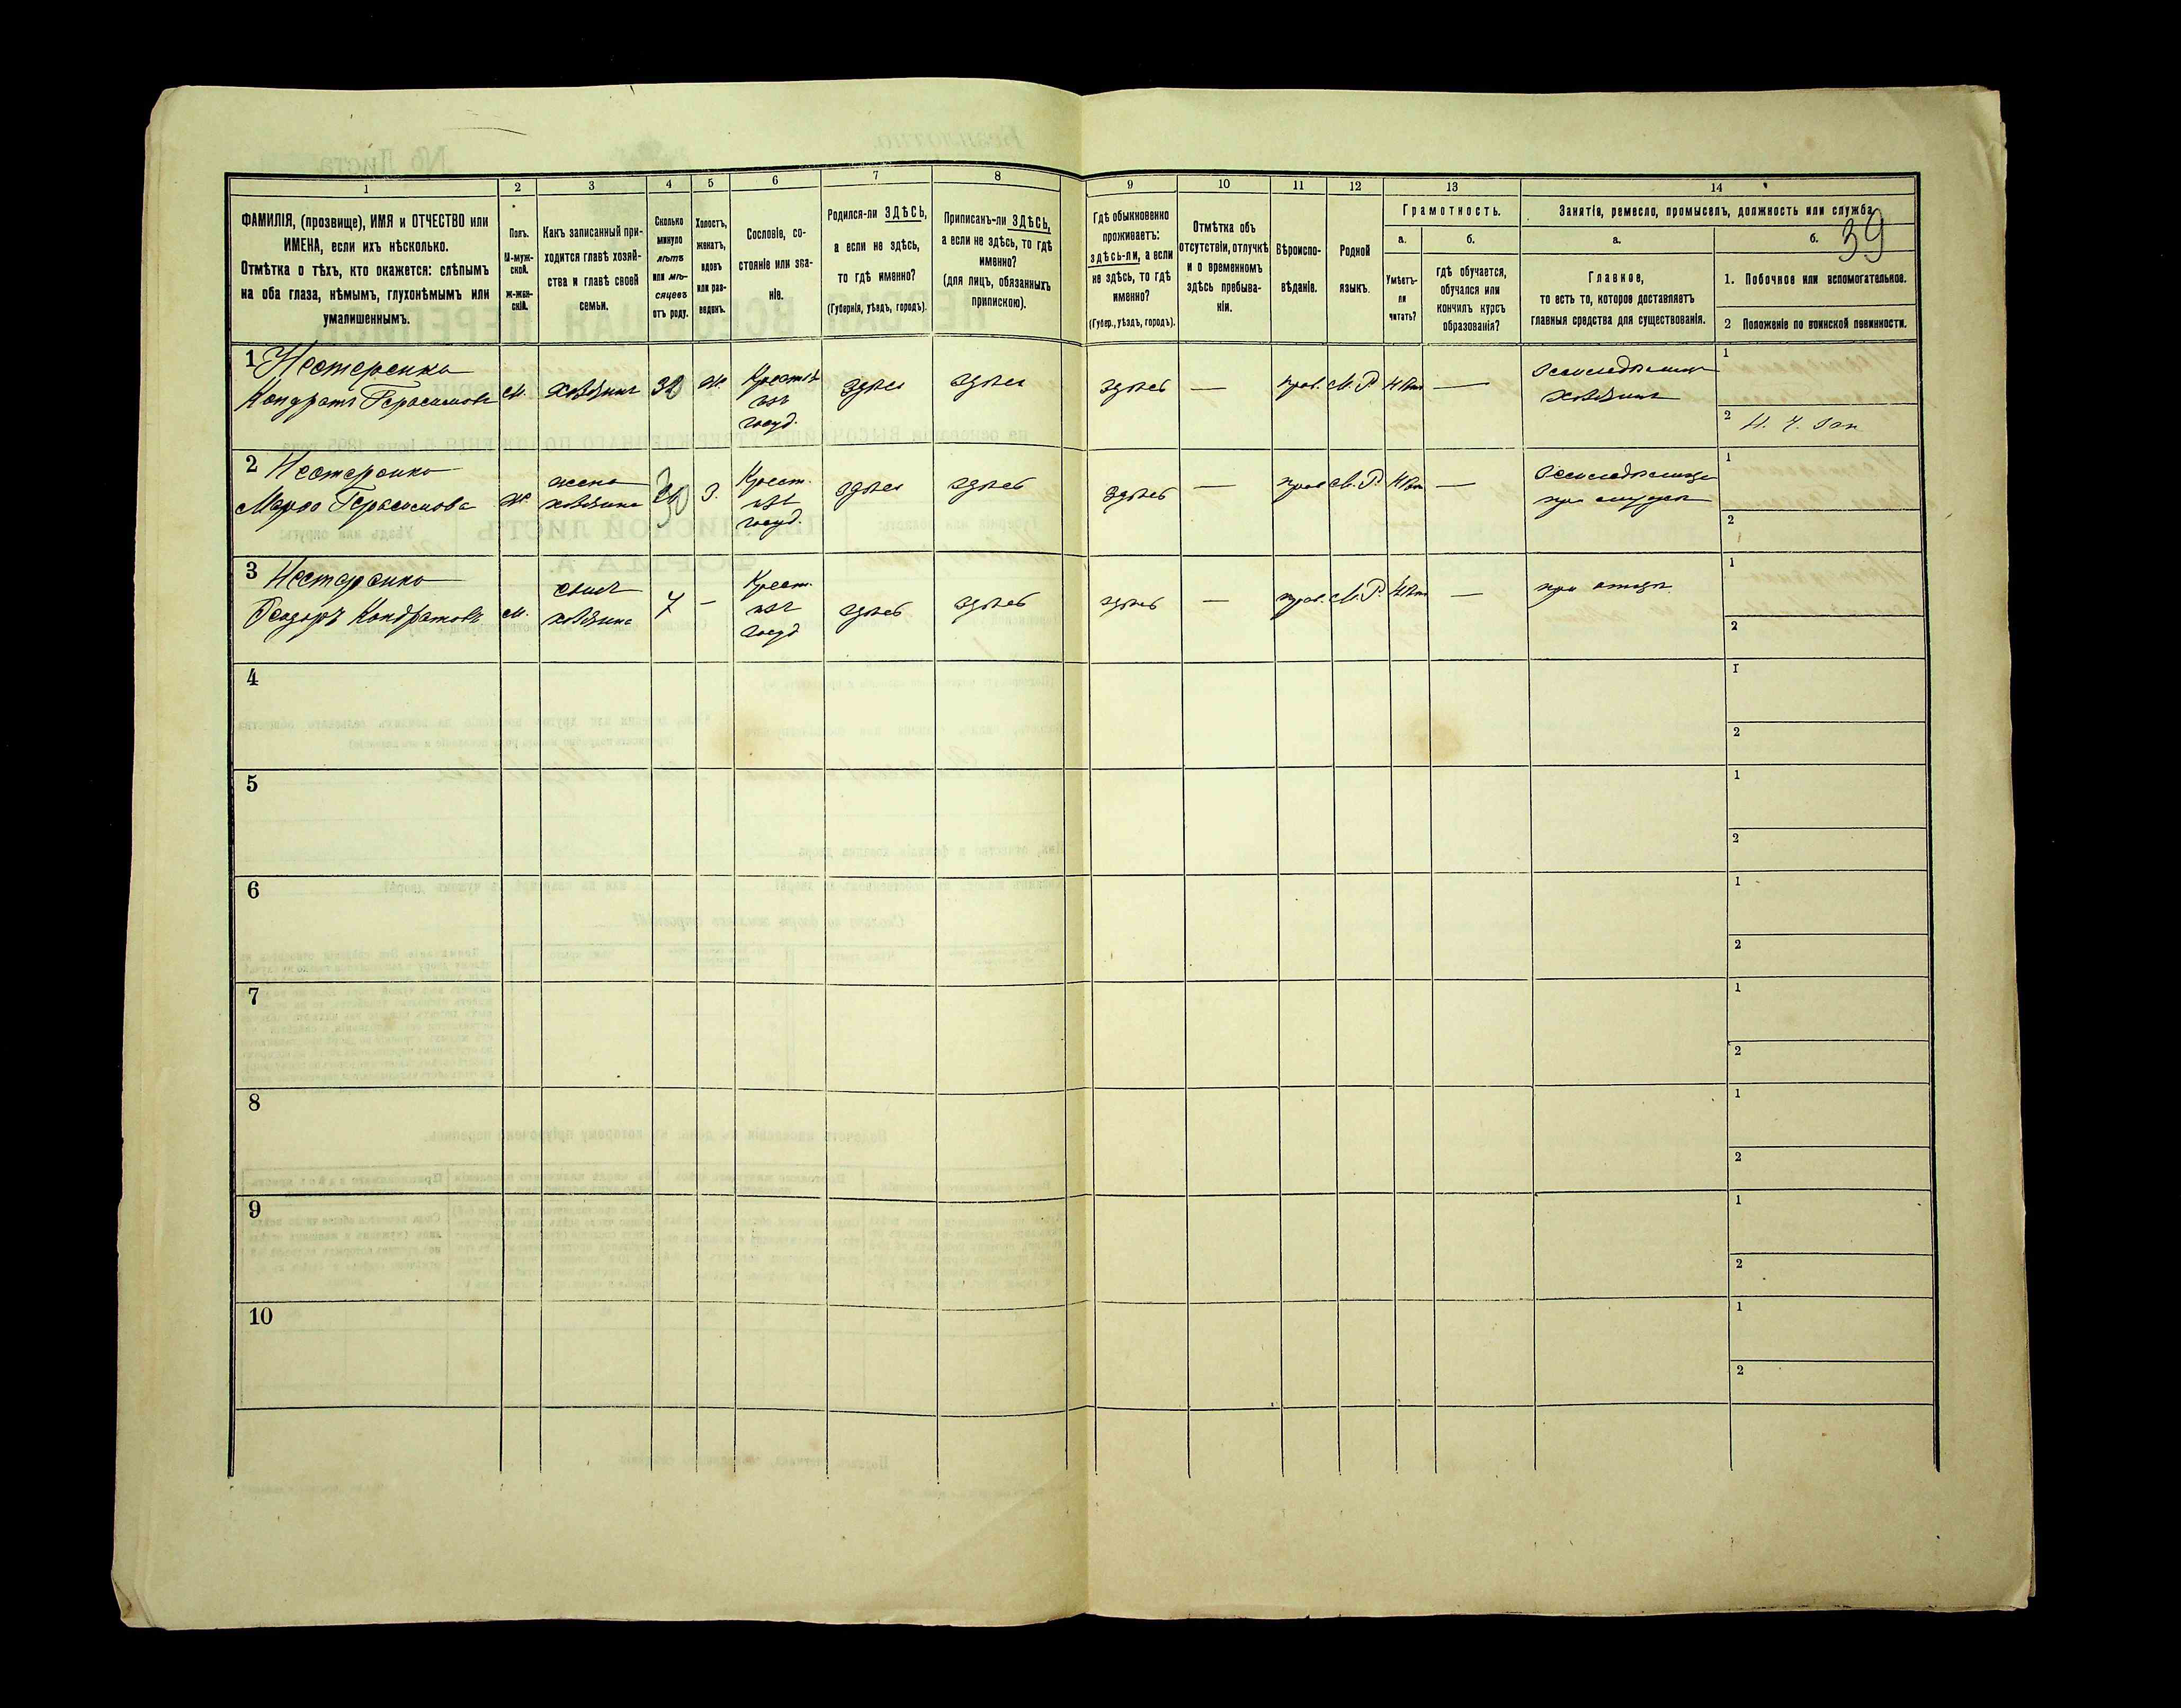 1 2 3 4 5 6 7 8 9 10 11 12 13 14
39
ФАМИЛІЯ, (прозвище), ИМЯ и ОТЧЕСТВО или
ИМЕНА, если ихъ нѣсколько.
Отмѣтка о тѣхъ, кто окажется: слѣпымъ
на оба глаза, нѣмымъ, глухонѣмымъ или
умалишеннымъ.
Полъ.
М-муж-
ской.
ж-жен-
скій.
Какъ записанный при-
ходится главѣ хозяй-
ства и главѣ своей
семьи.
Сколько
минуло
лѣтъ
или мѣ-
сяцевъ
отъ роду.
Холостъ,
женатъ,
вдовъ
или раз-
веденъ.
Сословіе, со-
стояніе или зва-
ніе.
Родился-ли ЗДѢСЬ,
а если не здѣсь,
то гдѣ именно?
(Губернія, уѣздъ, городъ).
Приписанъ-ли ЗДѢСЬ,
а если не здѣсь, то гдѣ
именно?
(для лицъ, обязанныхъ
припискою).
Гдѣ обыкновенно
проживаетъ:
здѣсь-ли, а если
не здѣсь, то гдѣ
именно?
(Губер., уѣздъ, городъ).
Отмѣтка объ
отсутствіи, отлучкѣ
и о временномъ
здѣсь пребыва-
ніи.
Вѣроиспо-
вѣданіе.
Родной
языкъ.
Грамотность.
а.
Умѣетъ-
ли
читать?
б.
гдѣ обучается,
обучался или
кончилъ курсъ
образованія?
Занятіе, ремесло, промыселъ, должность или служба
а.
Главное,
то есть то, которое доставляетъ
главныя средства для существованія.
б.
1. Побочное или вспомогательное.
2 Положеніе по воинской повинности.
1 Нестеренко
Кондратъ Герасимовъ
М.
хозяинъ
Ж.
Крест.
изъ
госуд.
здѣсь
здѣсь
здѣсь
—
прав.
М. Р.
нѣтъ
—
Земледѣлецъ
хозяинъ
1
2
2 Нестеренко
Марѳа Герасимова
Ж.
жена
хозяина
30
З.
Крест.
изъ
госуд.
здѣсь
здѣсь
здѣсь
—
прав
М. Р.
нѣтъ
—
при
1
2
3 Нестеренко
Ѳеодоръ Кондратовъ
М.
сынъ
хозяина
7
—
Крест.
изъ
госуд
здѣсь
здѣсь
здѣсь
—
прав.
М. Р.
нѣтъ
—
при отцѣ
1
2
4
1
2
5
1
2
6
1
2
7
1
2
8
1
2
9
1
2
10
1
2